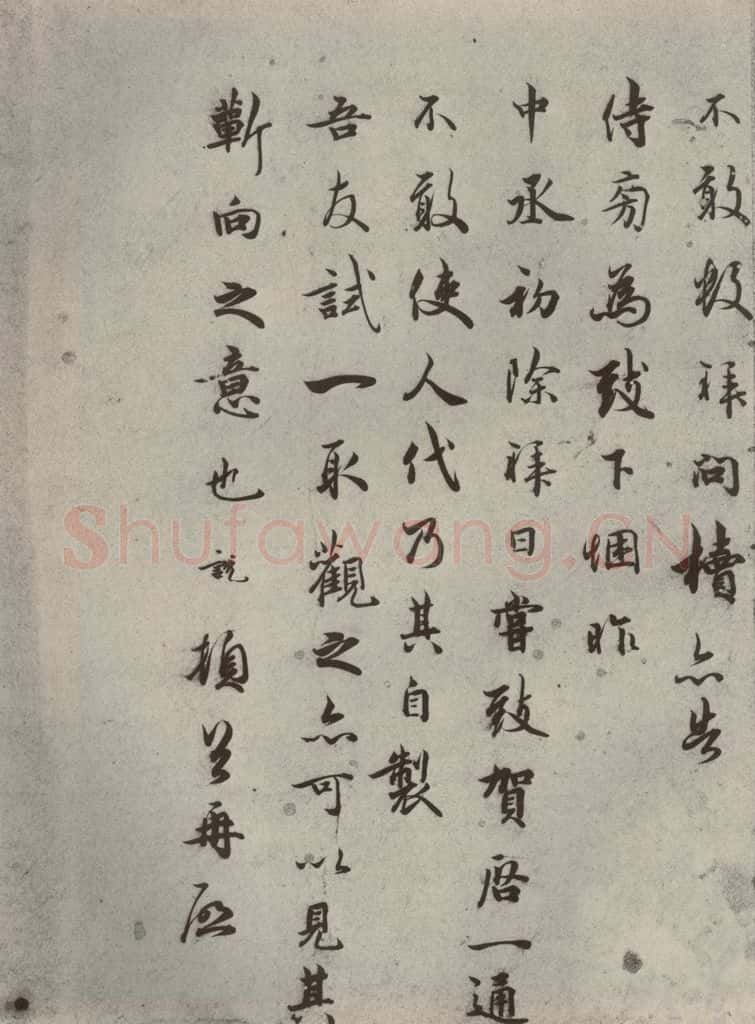 不敢數拜問櫝亦告
侍旁為致下悃昨
中丞初除拜日嘗致賀啓一通
不敢使人代乃其自製
吾友試一取觀之亦可以見其
蘄向之意也説頓首再啓
Shufawang.CN